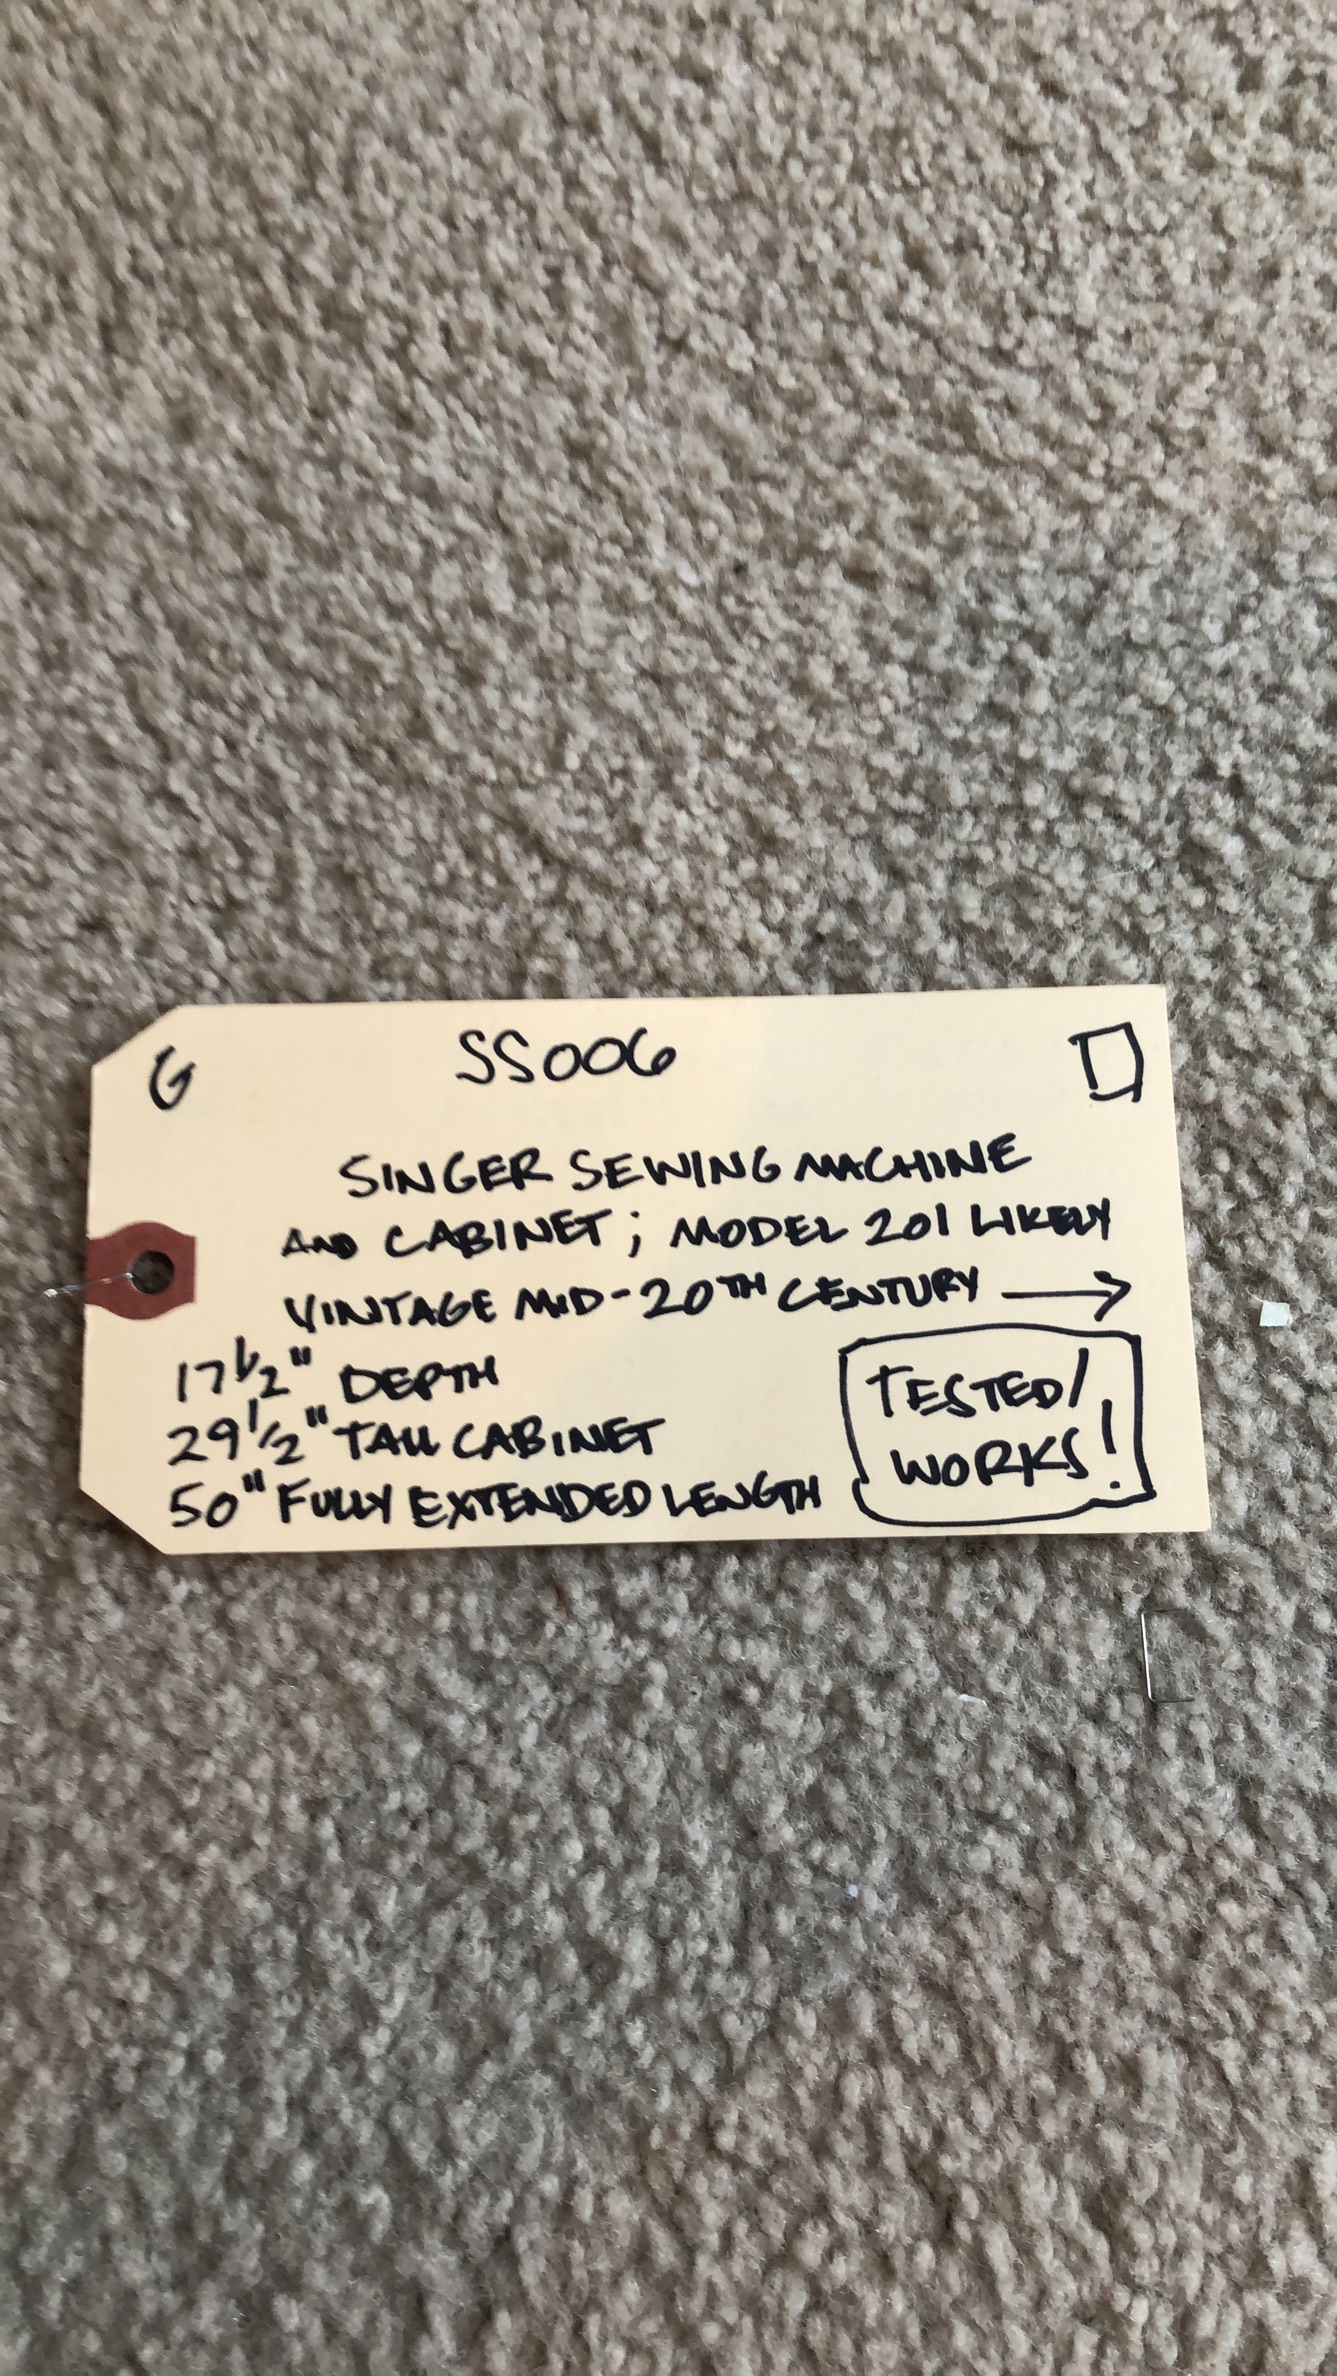 G SS006
SINGER SEWING MACHINE
AND CABINET; MODEL 201 LIKELY
VINTAGE MID-20TH CENTURY →
17 1/2" DEPTH
29 1/2" TALL CABINET
50" FULLY EXTENDED LENGTH
TESTED/
WORKS!